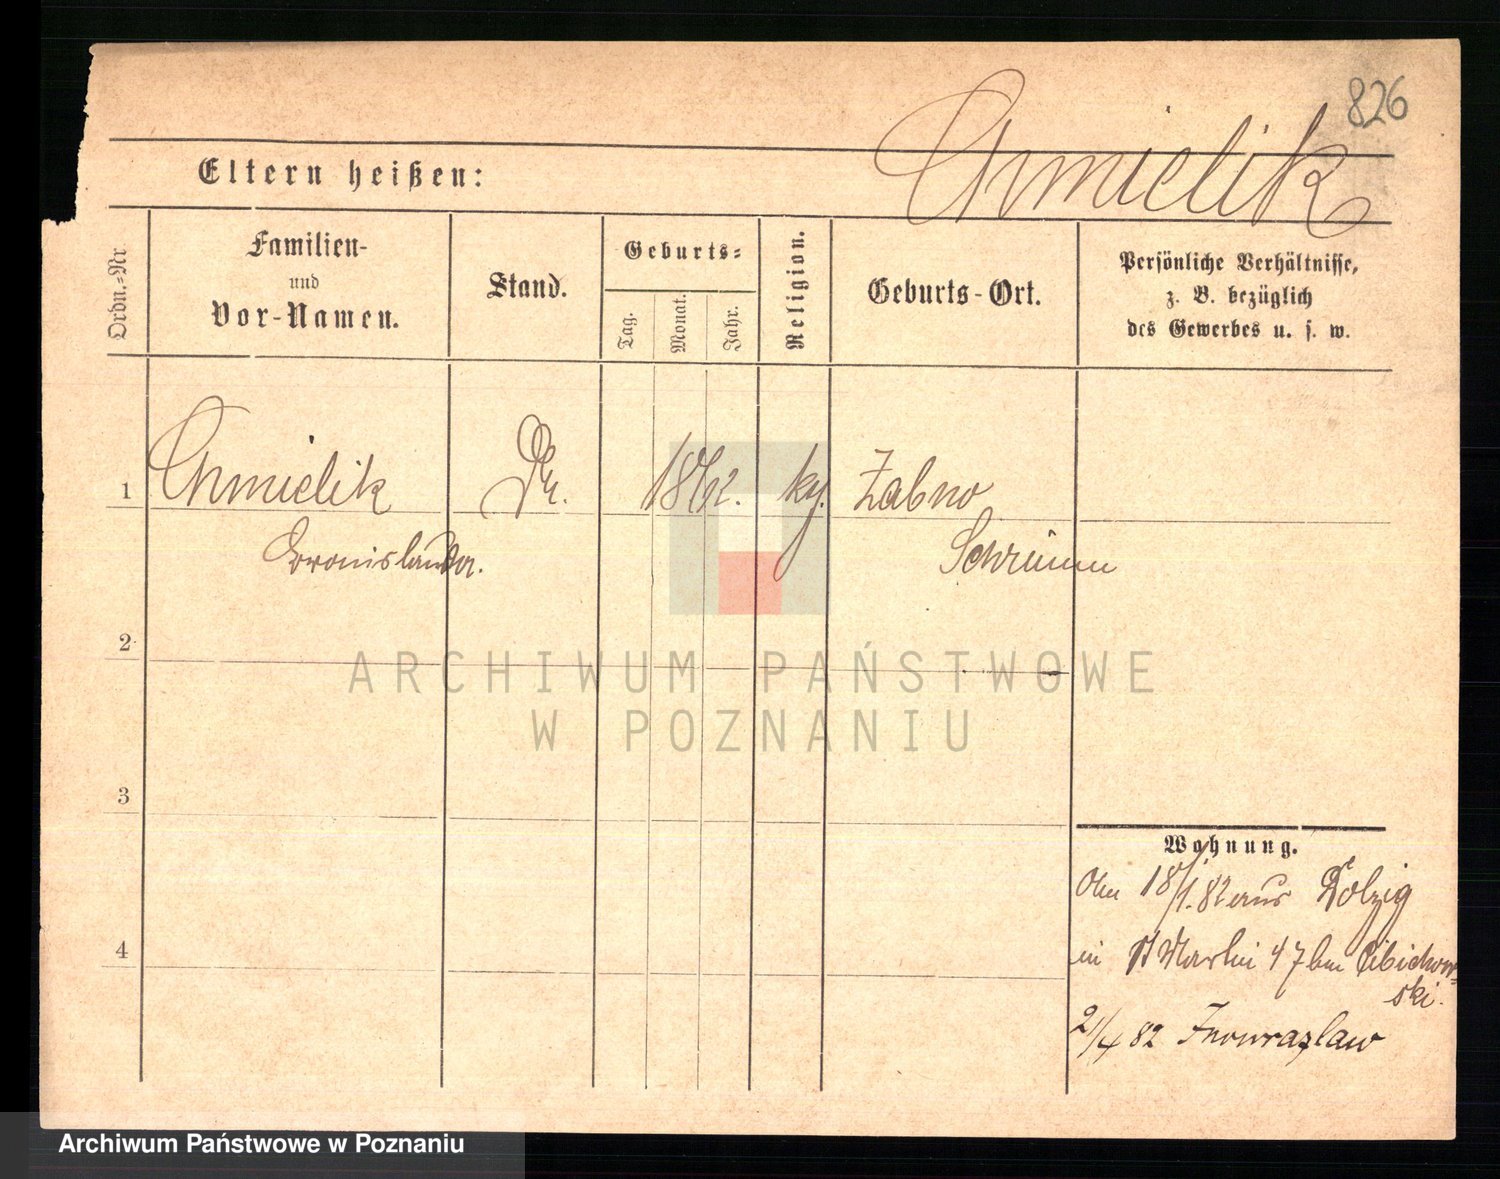 826
Chmielik
Eltern heißen:
Ordn.=Nr
Familien-
und
Vor-Namen.
Stand.
Geburts=
Tag.
Monat.
Jahr.
Religion.
Geburts-Ort.
Persönliche Verhältnisse,
z. B. bezüglich
des Gewerbes u. s. w.
1
Chmielik
1862.
Zabno
Bronislawa.
Schrimm
2
3
4
Wohnung.
18/1.82 aus Dolzig
in St Martin 47 bei
ski.
2/4 82 Inowrazlaw
ARCHIWUM PAŃSTWOWE
W POZNANIU
Archiwum Państwowe w Poznaniu